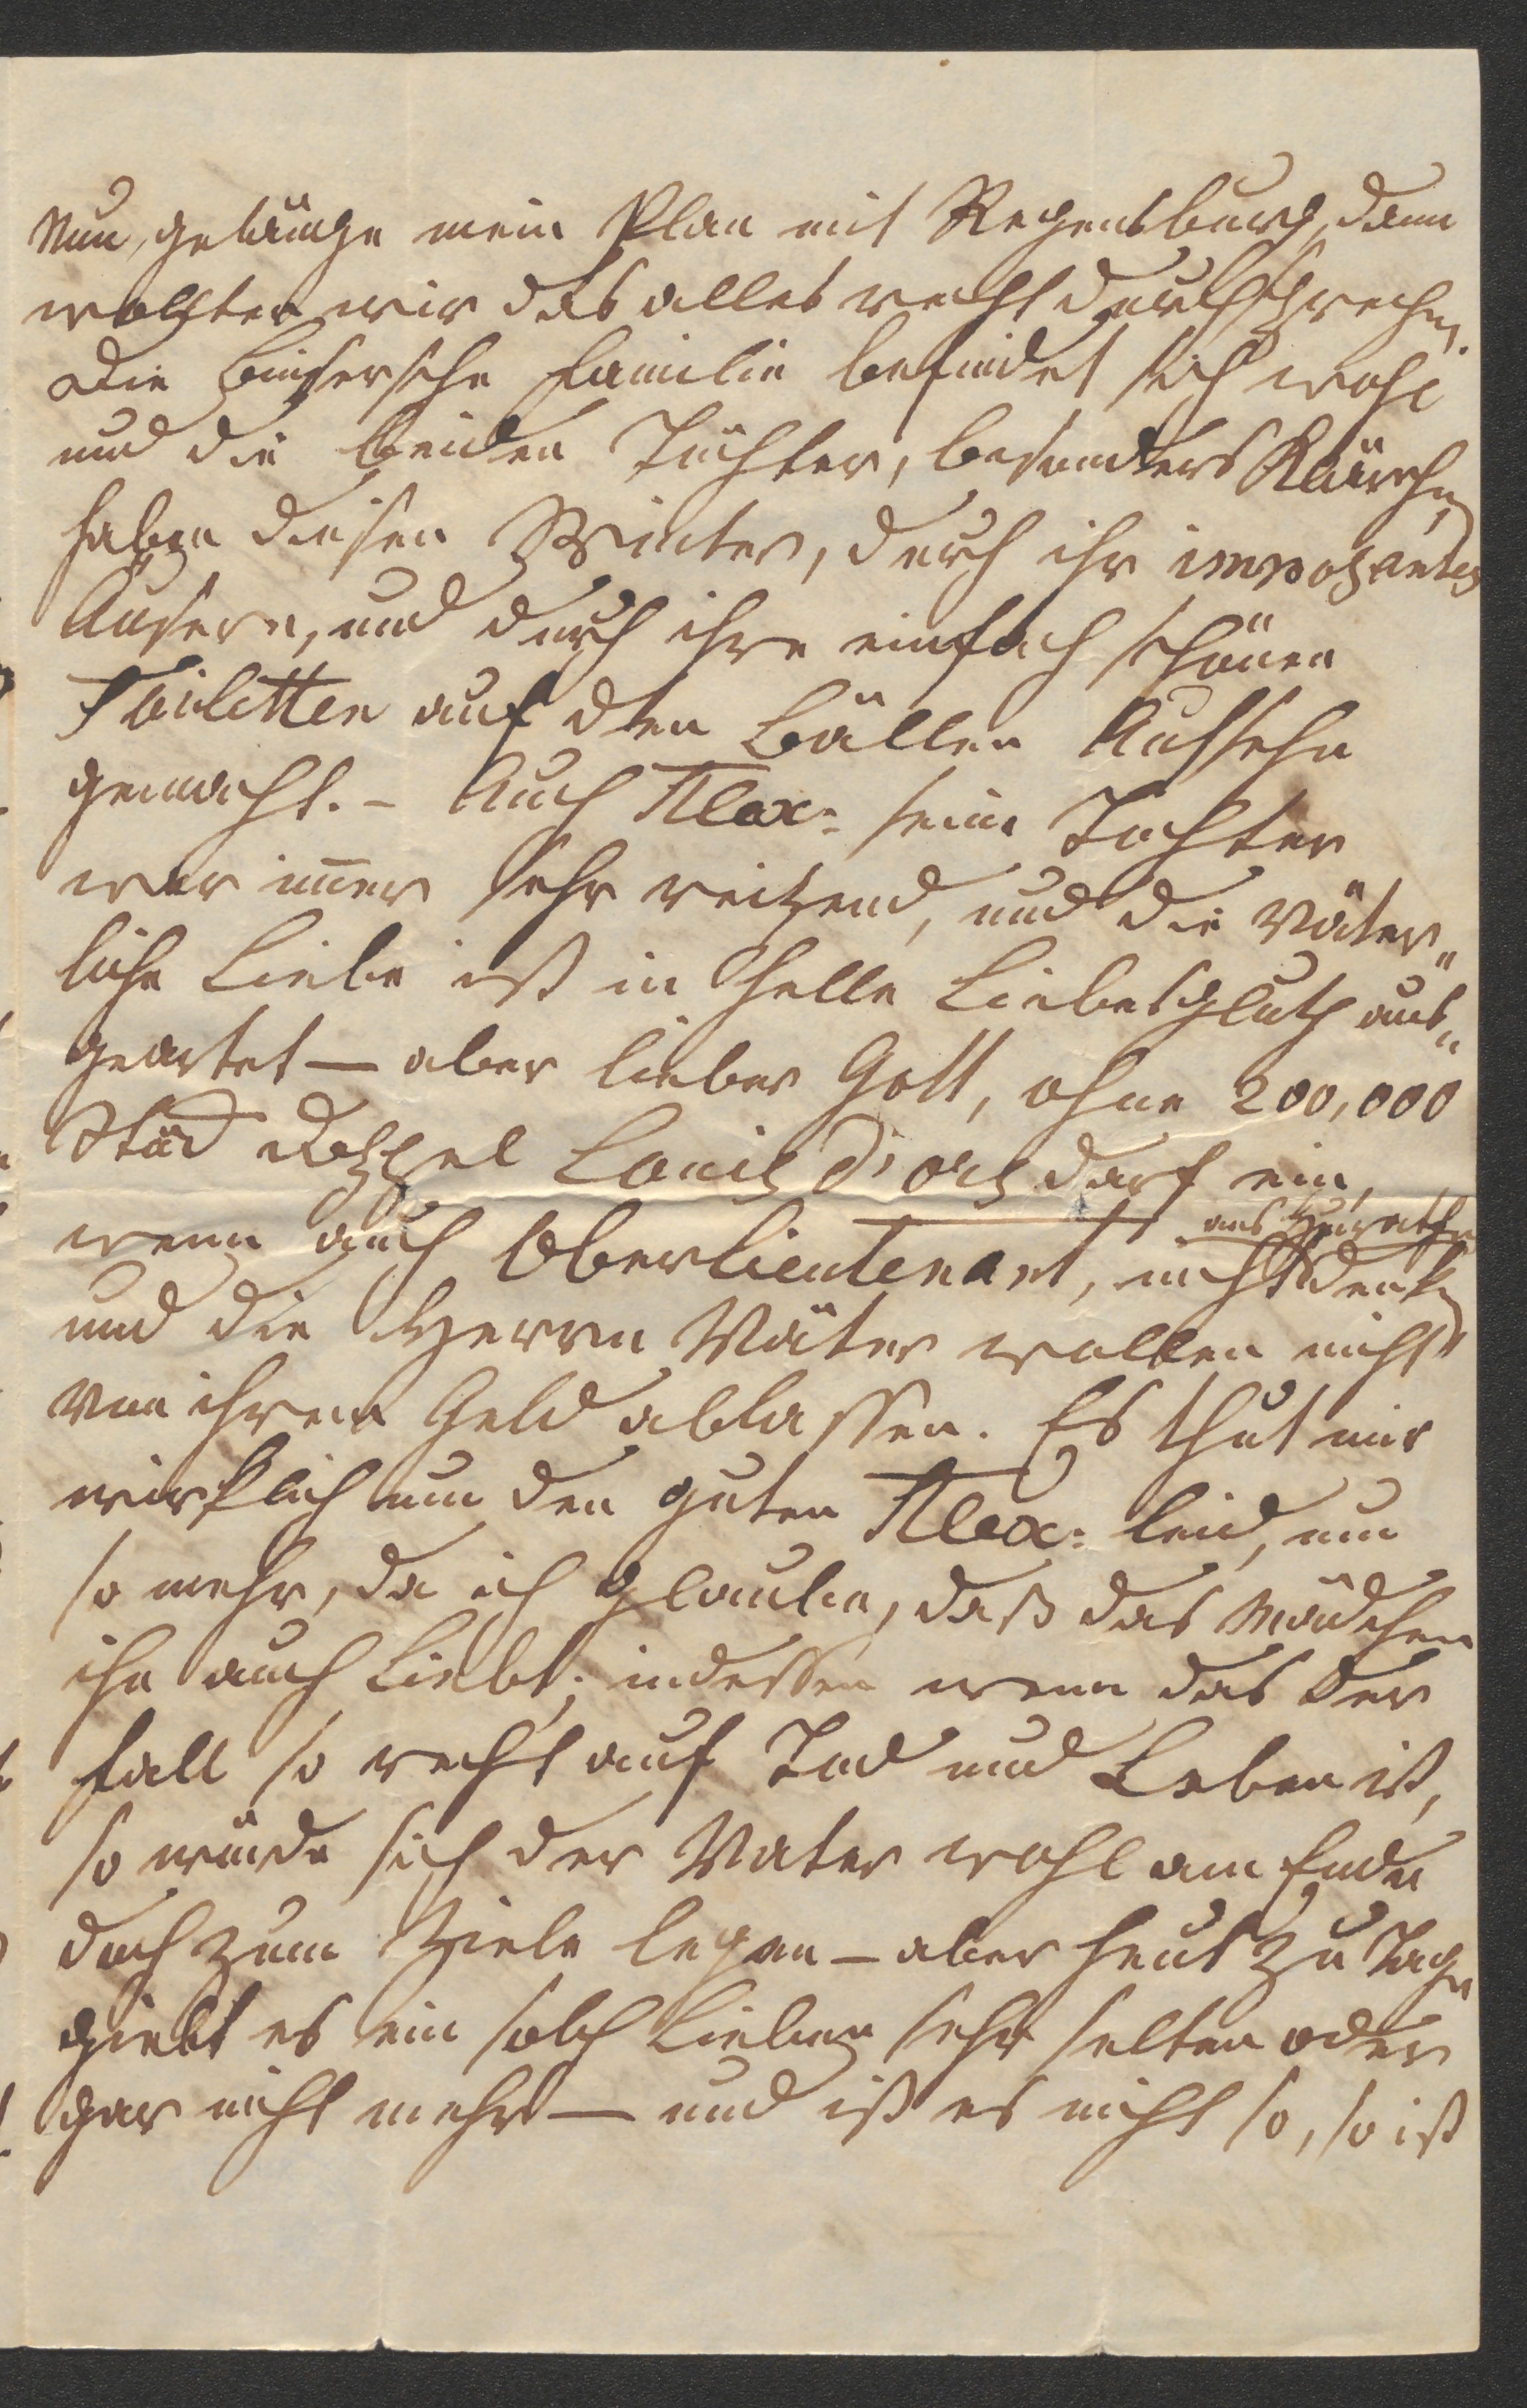 Nun, gelänge mein Plan mit Regensburg, dann
wollten wir das alles recht durchsprechen.
Die Binsersche Familie befindet sich wohl
und die beiden Töchter, besonders Klärchen
haben diesen Winter, durch ihr imposantes
Äusere, und durch ihre einfach schönen
Toiletten auf den Bällen Aufsehn
gemacht. – Auch Alex: seine Tochter
war im̄er sehr reitzend, und die väter„
liche Liebe ist in helle Liebesgluth aus„
geartet — aber lieber Gott, ohne 200,000
Stück doppel Louis d'ors darf ein,
wenn auch Oberlieutenant, nicht ans Heirathen denken
und die Herren Väter wollen nicht
von ihrem Geld ablassen. Es thut mir
wirklich um den guten Alex: leid, um
so mehr, da ich glaube, daß das Mädchen
ihn auch liebt; indessen wenn das der
Fall so recht auf Tod und Leben ist,
so würde sich der Vater wohl am Ende
doch zum Ziele legen – aber heut zu Tage
giebt es ein solch Lieben sehr selten oder
gar nicht mehr — und ist es nicht so, so ist